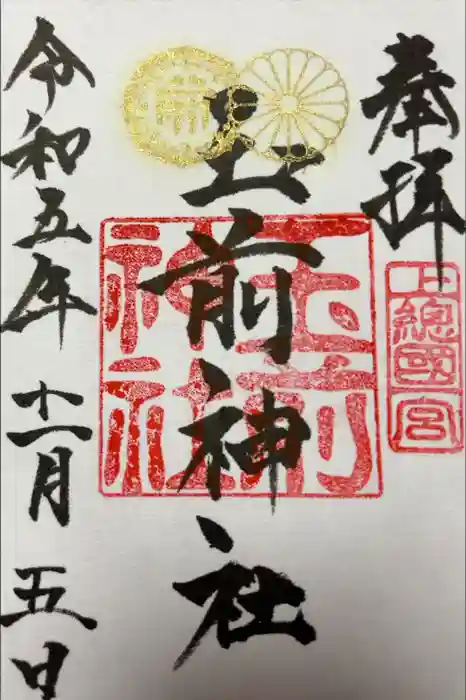 奉拝
上總國一宮
玉前神社
玉前神社
令和五年十一月五日